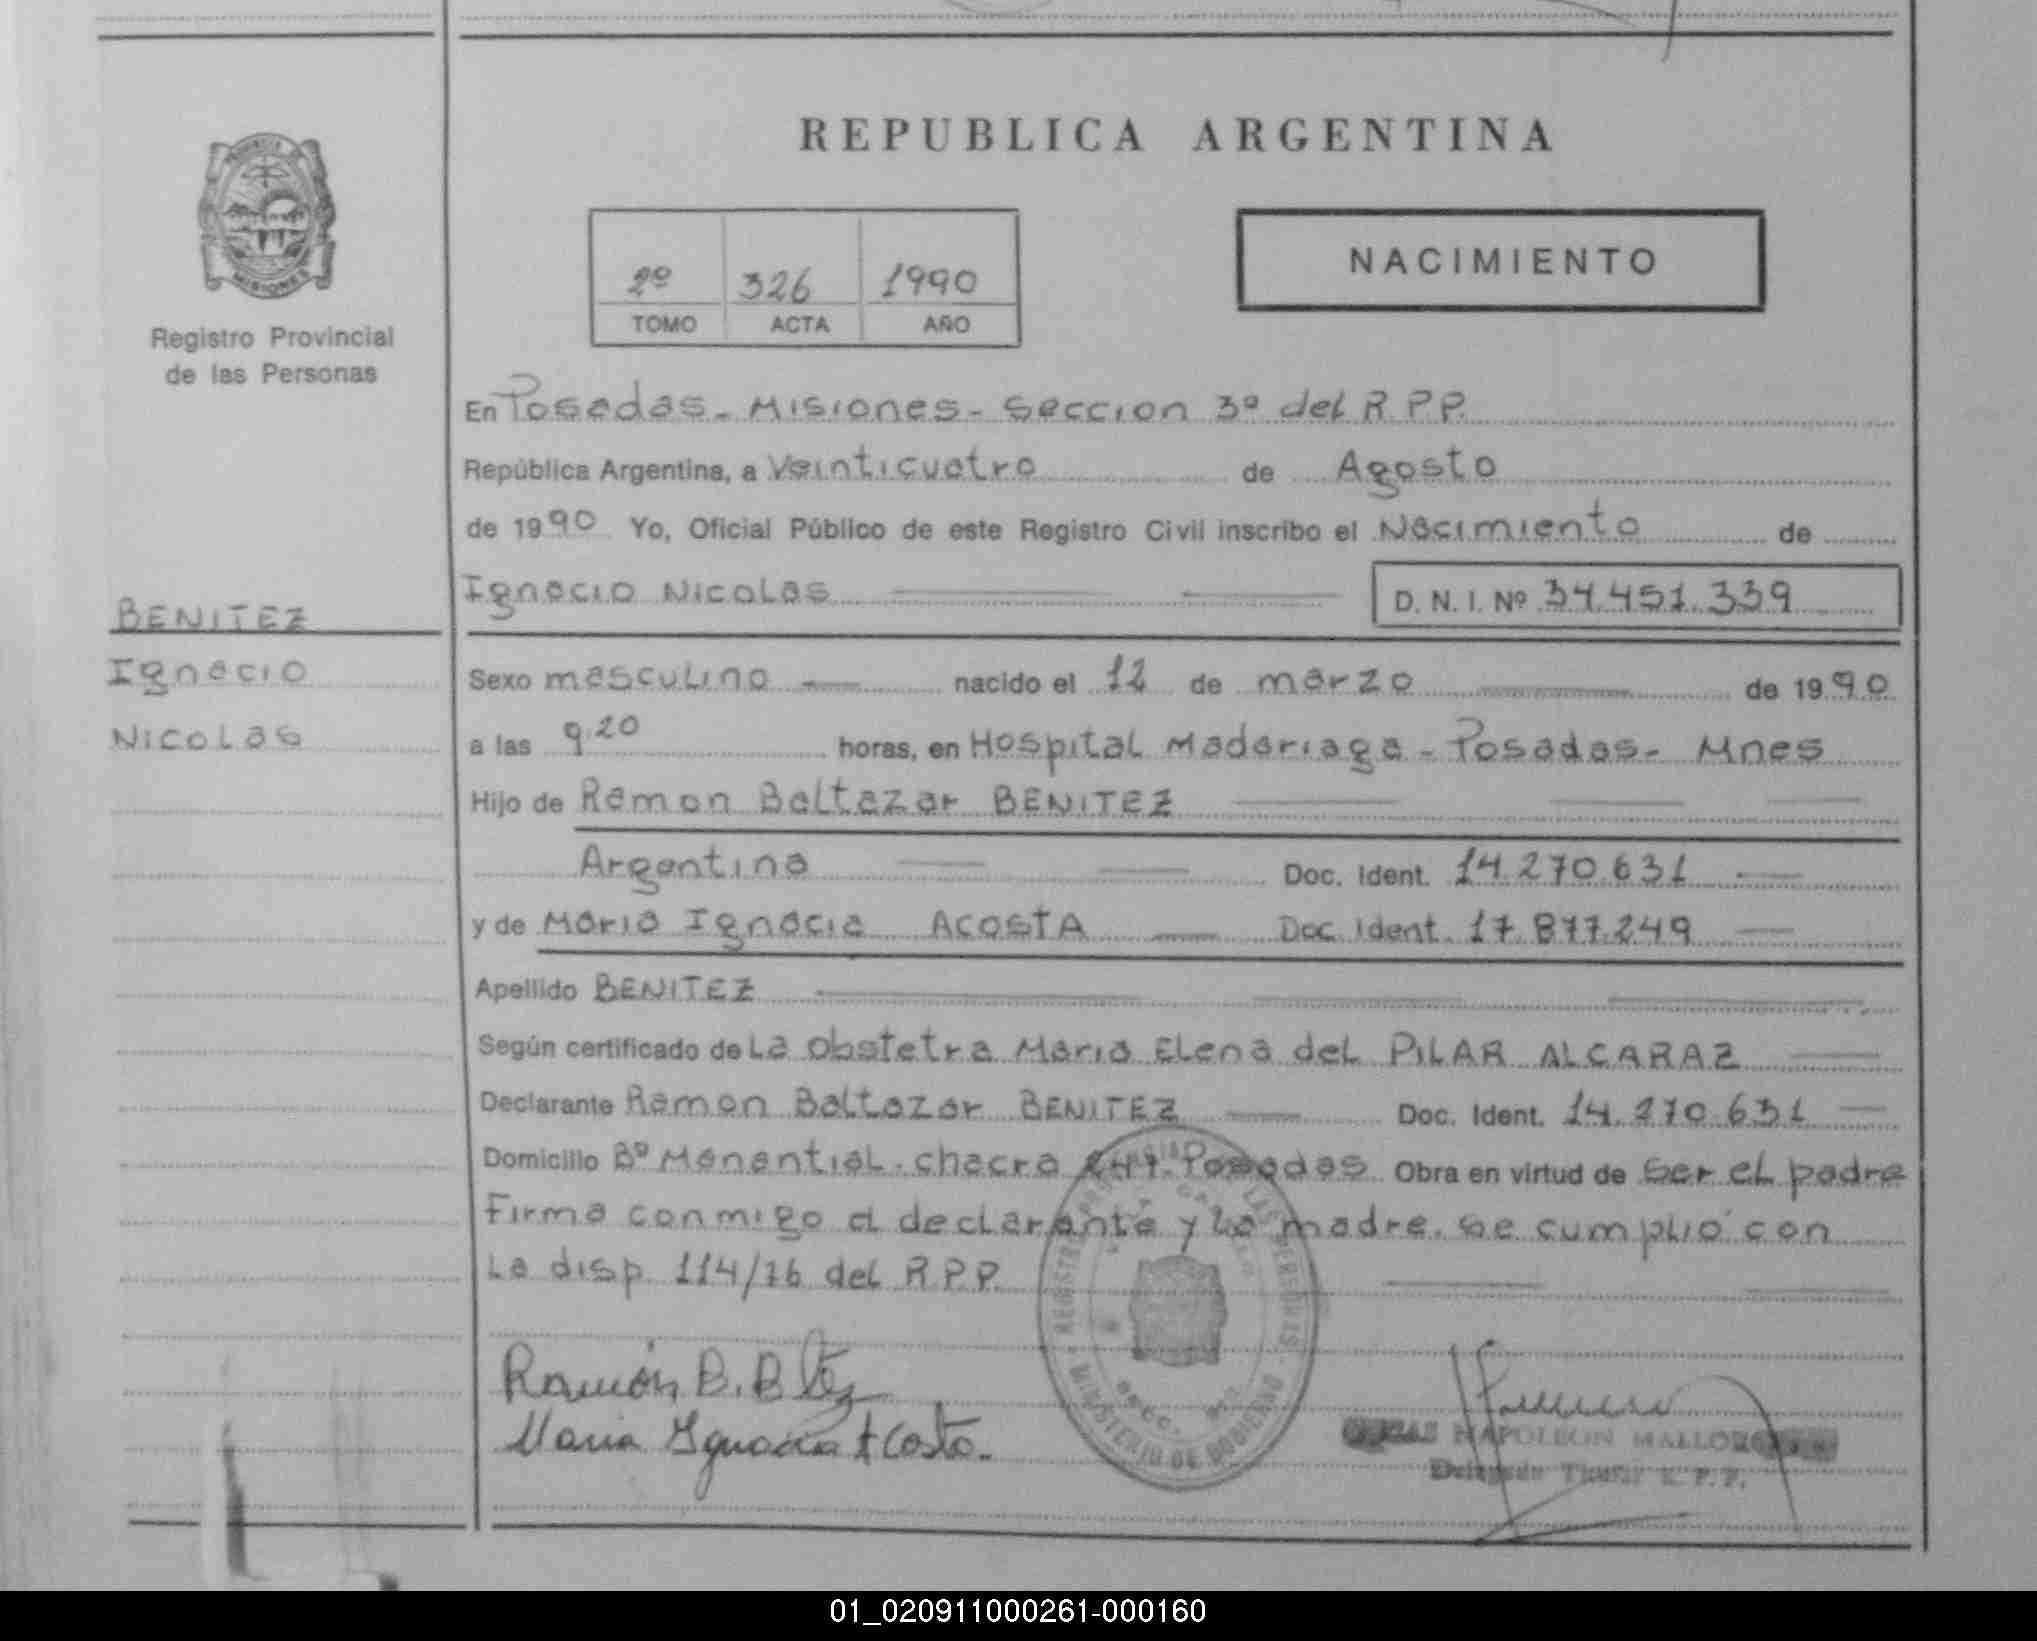 REPUBLICA ARGENTINA
PROVINCIA
MISIONES
Registro Provincial
de las Personas
2º 326 1990
TOMO ACTA AÑO
NACIMIENTO
En Posadas - Misiones - Seccion 3º del R.P.P.
República Argentina, a Veinticuatro de Agosto
de 1990 Yo, Oficial Público de este Registro Civil inscribo el Nacimiento de
Ignacio Nicolas D. N. I. Nº 34.451.339
BENITEZ
Ignacio
Nicolas
Sexo masculino nacido el 12 de marzo de 1990
a las 9.20 horas, en Hospital Madariaga - Posadas - Mnes
Hijo de Ramon Baltazar BENITEZ
Argentina Doc. Ident. 14.270.631
y de Maria Ignacia ACOSTA Doc. Ident. 17.877.249
Apellido BENITEZ
Según certificado de La obstetra Maria Elena del PILAR ALCARAZ
Declarante Ramon Baltazar BENITEZ Doc. Ident. 14.270.631
Domicilio Bº Manantial - chacra Posadas Obra en virtud de Ser el padre
Firma conmigo el declarante y La madre. se cumplió con
La disp. 114/76 del R.P.P.
REGISTRO LAS PERSONAS
MINISTERIO DE GOBIERNO
Ramón B. Btez
Maria Ignacia Acosta.
NAPOLEON
Delegado R.P.P.
01_020911000261-000160